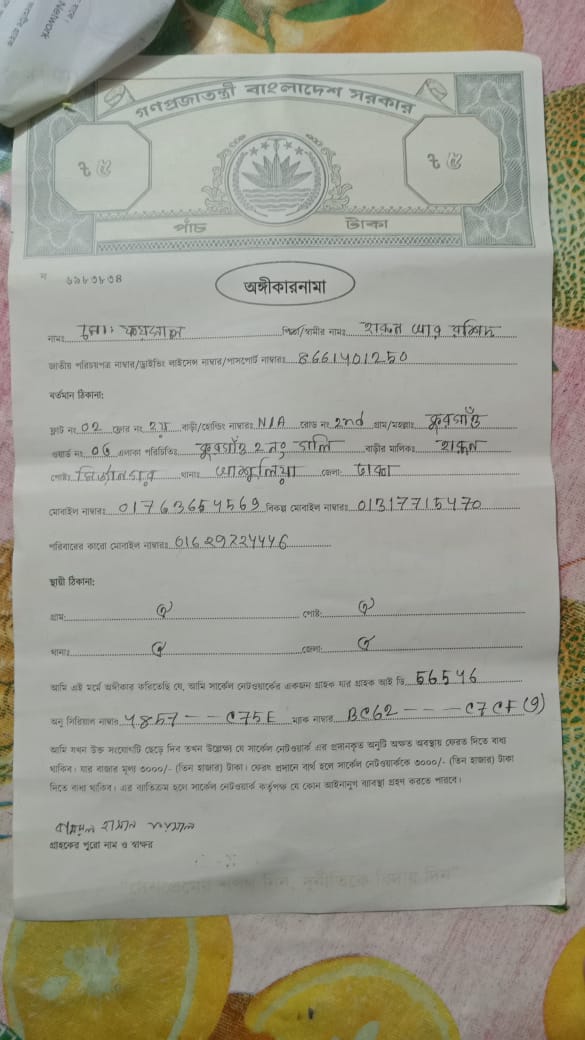 Network
গণপ্রজাতন্ত্রী বাংলাদেশ সরকার
ট ৫ ট ৫
পাঁচ টাকা
ন ৬৯৮৩৮৩৪
অঙ্গীকারনামা
নামঃ মোঃ ফয়সাল পিতা/স্বামীর নামঃ হারুন আর রশিদ
জাতীয় পরিচয়পত্র নাম্বার/ড্রাইভিং লাইসেন্স নাম্বার/পাসপোর্ট নাম্বারঃ 8661401250
বর্তমান ঠিকানা:
ফ্লাট নং 02 ফ্লোর নং ২য় বাড়ী/হোল্ডিং নাম্বারঃ N/A রোড নং 2nd গ্রাম/মহল্লাঃ কুরগাঁও
ওয়ার্ড নং 06 এলাকা পরিচিতিঃ কুরগাঁও 2 নং গলি বাড়ীর মালিকঃ হারুন
পোষ্টঃ মির্জানগর থানাঃ আশুলিয়া জেলা: ঢাকা
মোবাইল নাম্বারঃ 01763654569 বিকল্প মোবাইল নাম্বারঃ 01317715470
পরিবারের কারো মোবাইল নাম্বারঃ 01629724446
স্থায়ী ঠিকানা:
গ্রাম: ঐ পোষ্ট: ঐ
থানাঃ ঐ জেলা: ঐ
আমি এই মর্মে অঙ্গীকার করিতেছি যে, আমি সার্কেল নেটওয়ার্কের একজন গ্রাহক যার গ্রাহক আই ডি 56546
অনু সিরিয়াল নাম্বার 4857 -- C75E ম্যাক নাম্বার BC62 --- C7CF (9)
আমি যখন উক্ত সংযোগটি ছেড়ে দিব তখন উল্লেক্ষ্য যে সার্কেল নেটওয়ার্ক এর প্রদানকৃত অনুটি অক্ষত অবস্থায় ফেরত দিতে বাধ্য
থাকিব। যার বাজার মূল্য ৩০০০/- (তিন হাজার) টাকা। ফেরৎ প্রদানে ব্যর্থ হলে সার্কেল নেটওয়ার্ককে ৩০০০/- (তিন হাজার) টাকা
দিতে বাধ্য থাকিব। এর ব্যতিক্রম হলে সার্কেল নেটওয়ার্ক কর্তৃপক্ষ যে কোন আইনানুগ ব্যবস্থা গ্রহণ করতে পারবে।
হাসান
গ্রাহকের পুরো নাম ও স্বাক্ষর